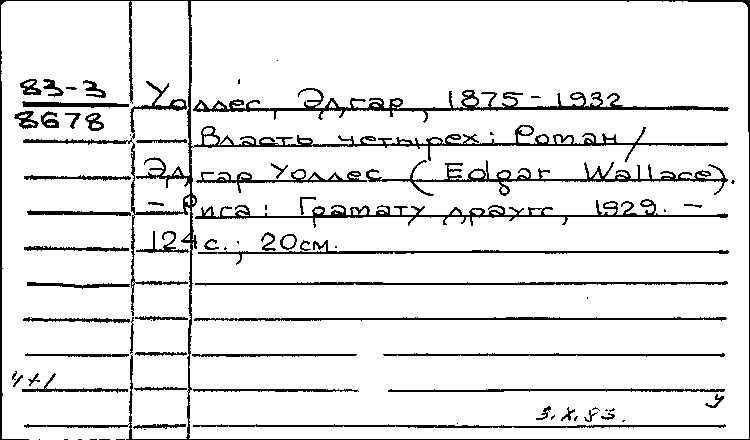 83-3 Уоллес, Эдгар, 1875-1932
8678 Власть четырех: Роман /
Эдгар Уоллес (Edgar Wallace).
- Рига: Грамату драугс, 1929. -
124 с.; 20 см.
4+1 у
3.X.83.